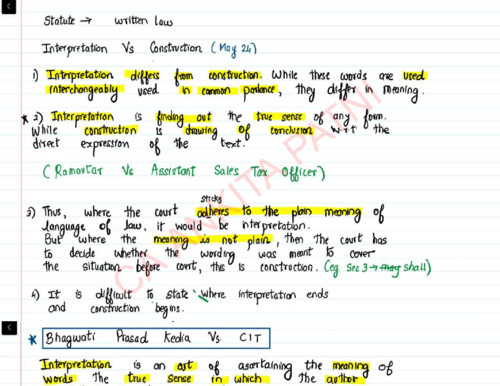 Statute → written law
Interpretation Vs Construction (May 24)
1) Interpretation differs from construction. While these words are used
interchangeably used in common parlance, they differ in meaning.
* 2) Interpretation is finding out the true sense of any form.
While construction is drawing of conclusion w.r.t the
direct expression of the text.
(Ramavtar Vs Assistant Sales Tax Officer)
stricky
3) Thus, where the court adheres to the plain meaning of
language of law, it would be interpretation.
But where the meaning is not plain, then the court has
to decide whether the wording was meant to cover
the situation before court, this is construction. (eg Sec 3→ may shall)
4) It is difficult to state where interpretation ends
and construction begins.
* Bhagwati Prasad Kedia Vs CIT
Interpretation is an art of asertaining the meaning of
words. The true sense in which the author
CA ANKITA PATNI